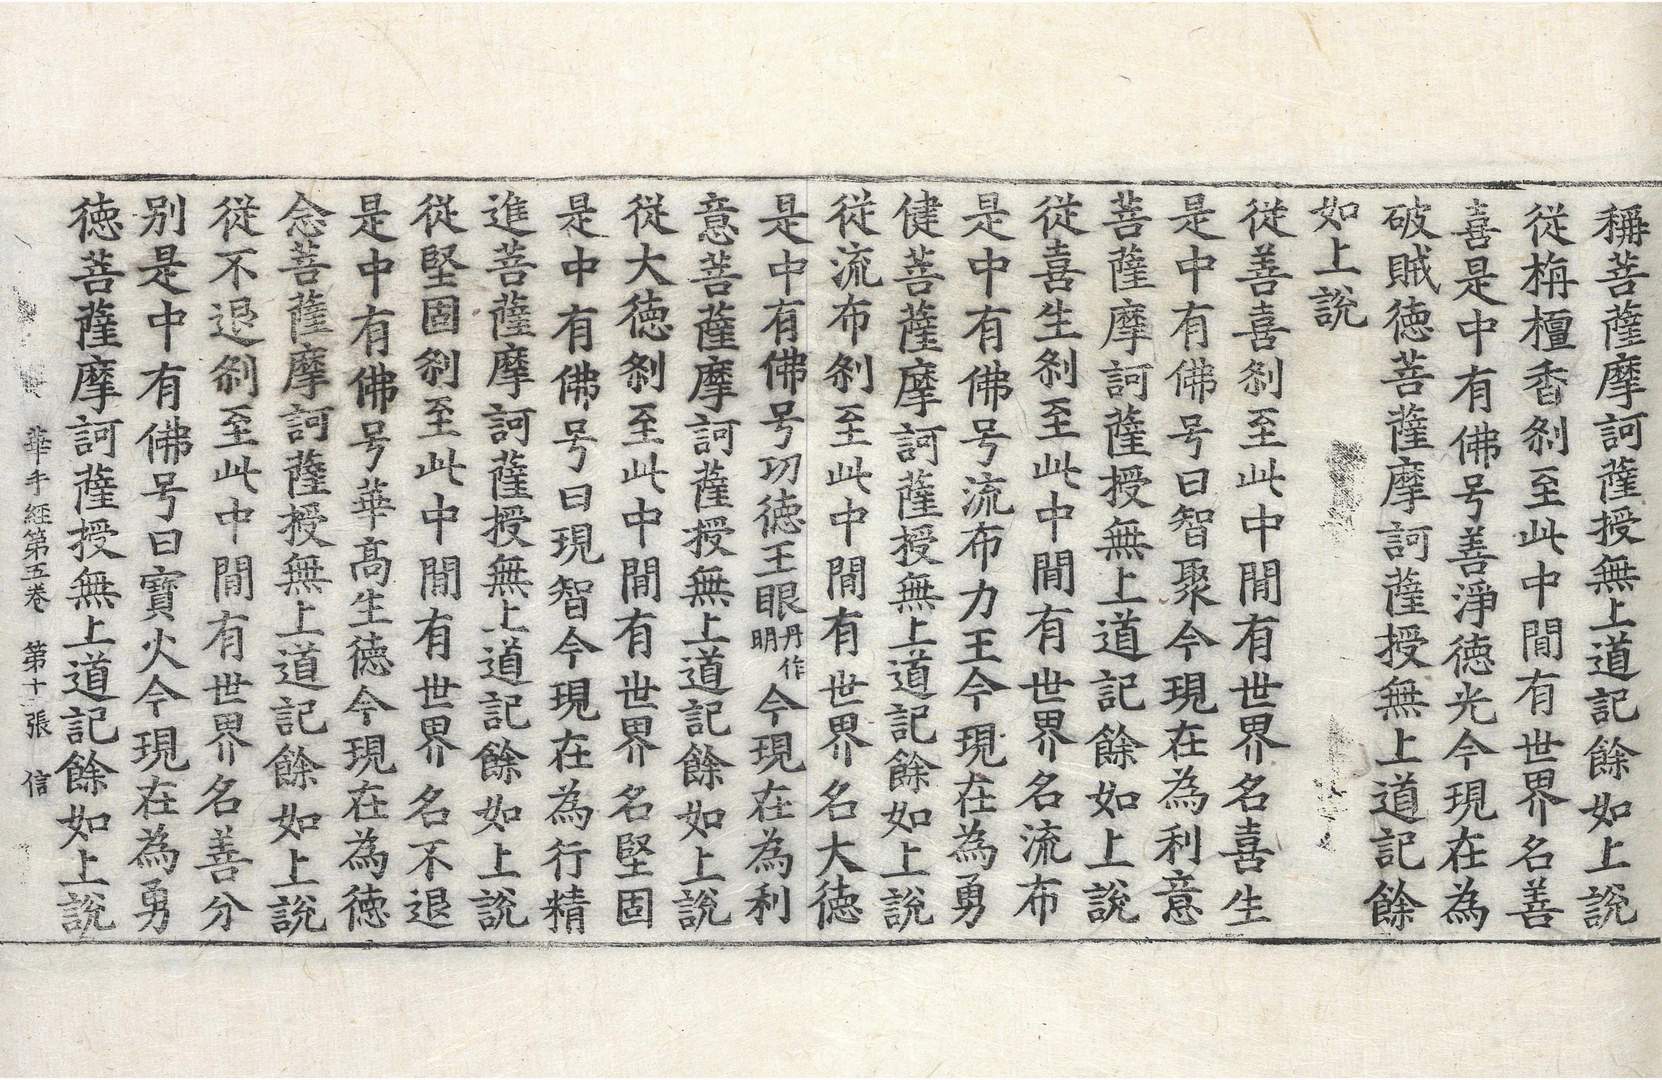 稱菩薩摩訶薩授無上道記餘如上說
從栴檀香剎至此中閒有世界名善
喜是中有佛号善淨德光今現在為
破賊德菩薩摩訶薩授無上道記餘
如上說
從善喜剎至此中閒有世界名喜生
是中有佛号曰智聚今現在為利意
菩薩摩訶薩授無上道記餘如上說
從喜生剎至此中閒有世界名流布
是中有佛号流布力王今現在為勇
健菩薩摩訶薩授無上道記餘如上說
從流布剎至此中閒有世界名大德
是中有佛号功德王眼丹作明今現在為利
意菩薩摩訶薩授無上道記餘如上說
從大德剎至此中閒有世界名堅固
是中有佛号曰現智今現在為行精
進菩薩摩訶薩授無上道記餘如上說
從堅固剎至此中閒有世界名不退
是中有佛号華高生德今現在為德
念菩薩摩訶薩授無上道記餘如上說
從不退剎至此中閒有世界名善分
別是中有佛号曰寶火今現在為勇
德菩薩摩訶薩授無上道記餘如上說
華手經第五卷 第十張 信